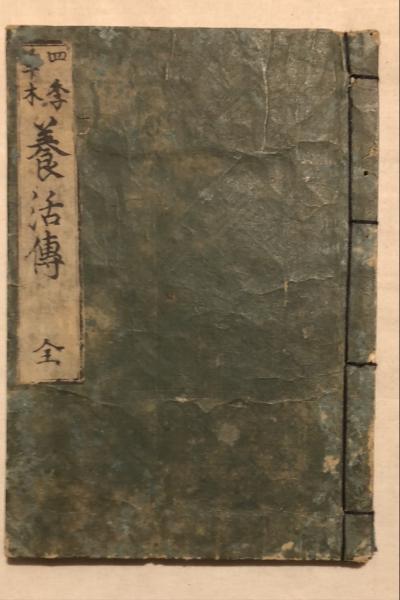 四季
草木
養活傳
全